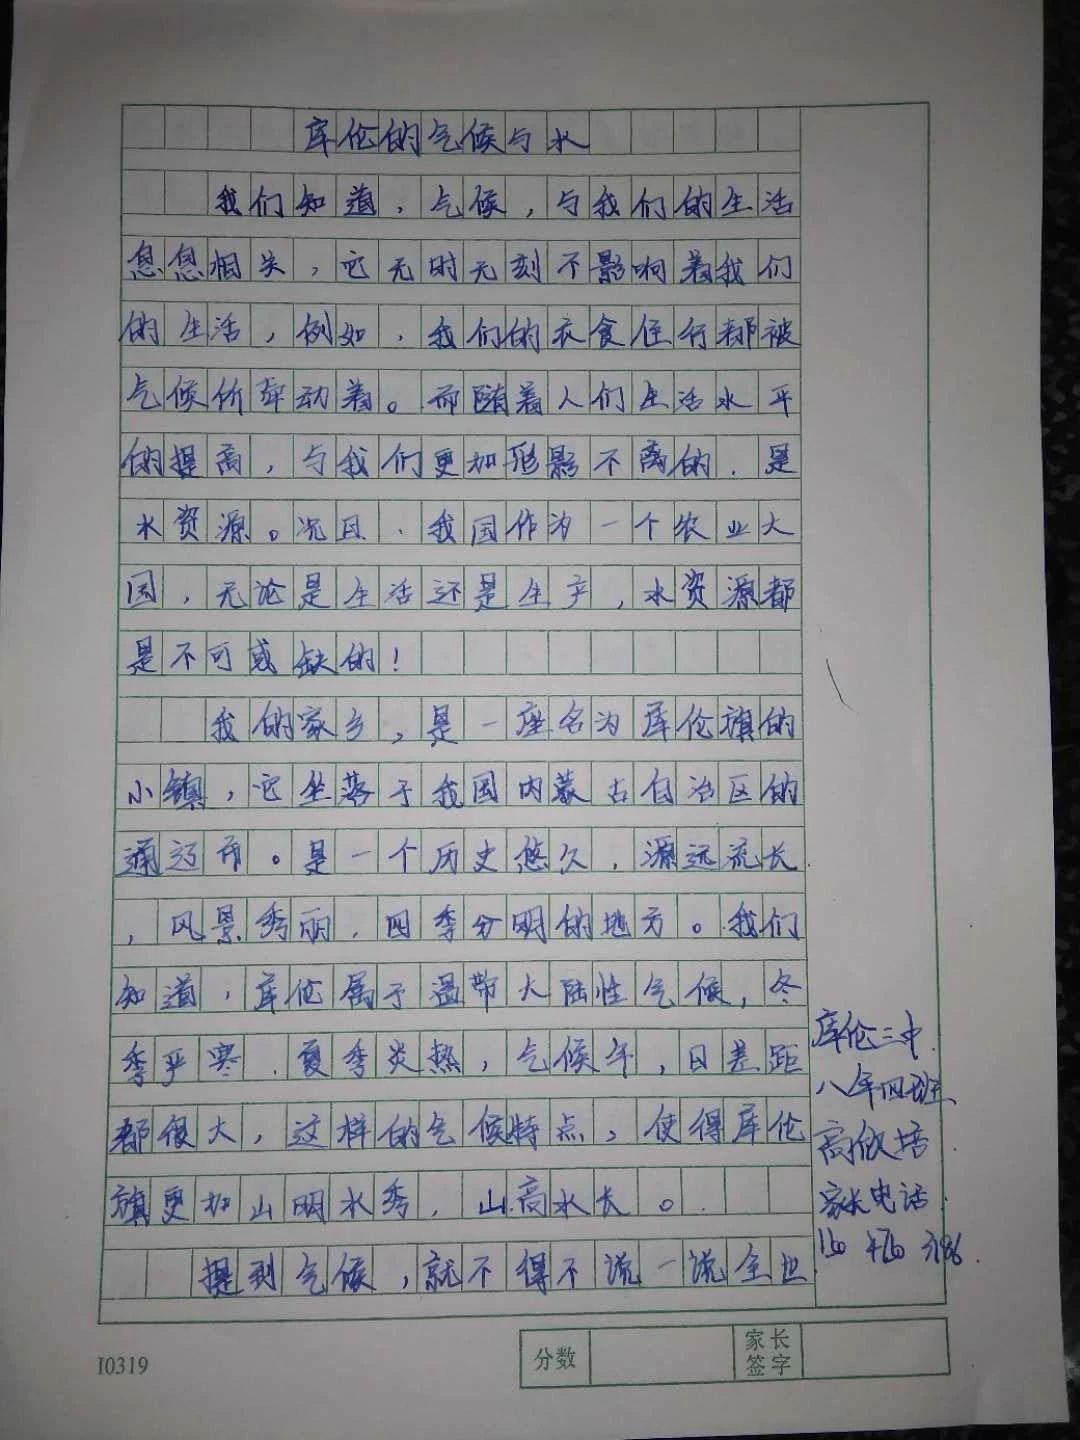 库伦的气候与水
我们知道，气候，与我们的生活
息息相关，它无时无刻不影响着我们
的生活，例如，我们的衣食住行都被
气候所牵动着。而随着人们生活水平
的提高，与我们更加形影不离的，是
水资源。况且，我国作为一个农业大
国，无论是生活还是生产，水资源都
是不可或缺的！
我的家乡，是一座名为库伦旗的
小镇，它坐落于我国内蒙古自治区的
通辽市。是一个历史悠久，源远流长
，风景秀丽，四季分明的地方。我们
知道，库伦属于温带大陆性气候，冬
季严寒，夏季炎热，气候年，日差距
都很大，这样的气候特点，使得库伦
旗更加山明水秀，山高水长。
提到气候，就不得不说一说全世
库伦三中
八年四班
高
家长电话
分数
家长
签字
I0319